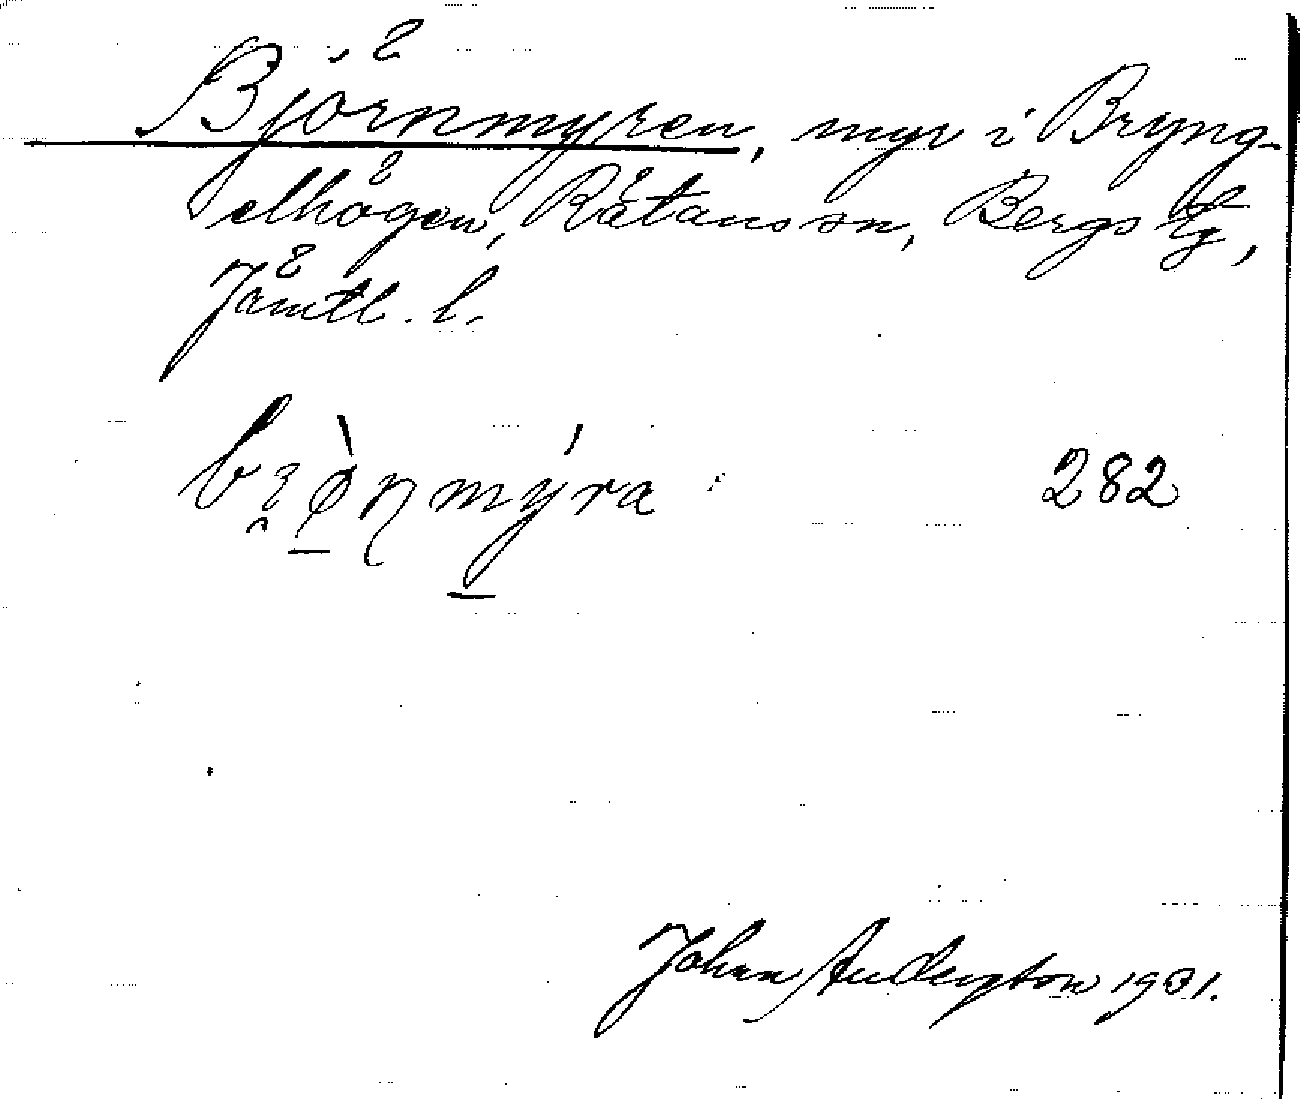 Björnmyren, myr i Bryng-
elhögen, Rätans sn, Bergs tg,
Jämtl. l.
282
Johan Anderston 1931.